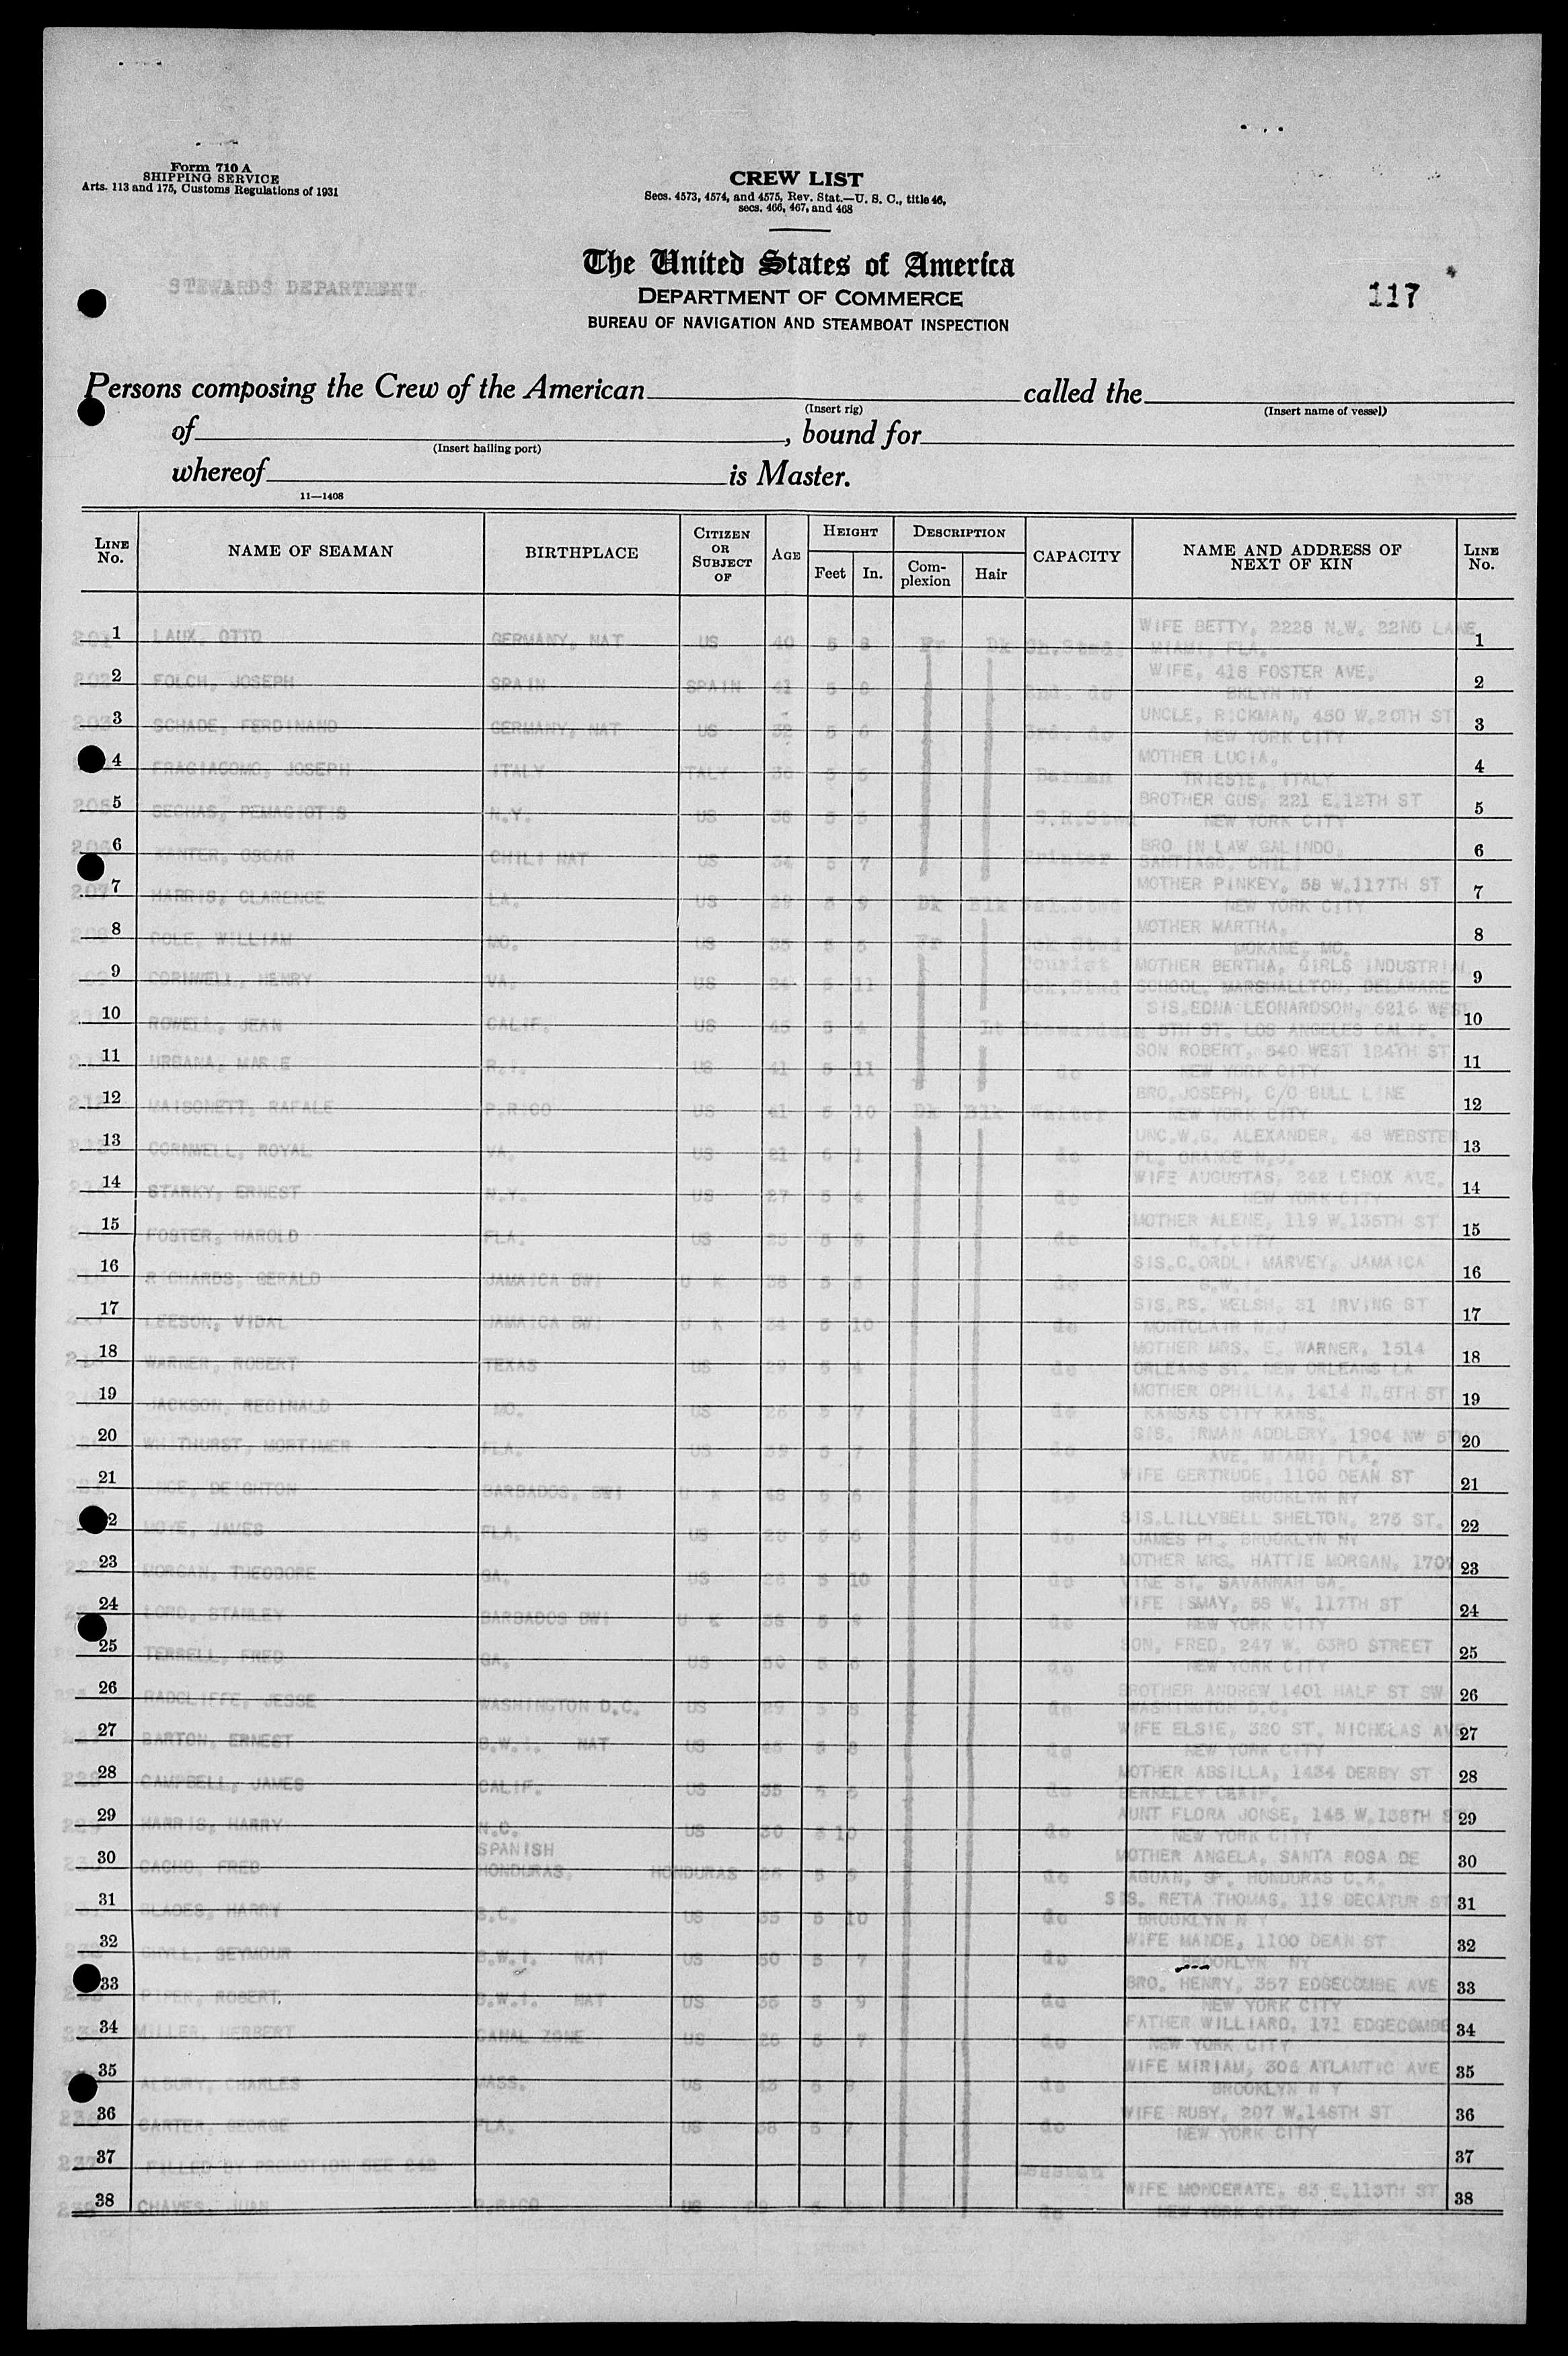 Form 710 A
SHIPPING SERVICE
Arts. 113 and 175, Customs Regulations of 1931
CREW LIST
Secs. 4573, 4574, and 4575, Rev. Stat.—U. S. C., title 46,
secs. 466, 467, and 468
The United States of America
DEPARTMENT OF COMMERCE
BUREAU OF NAVIGATION AND STEAMBOAT INSPECTION
STEWARDS DEPARTMENT.
117
Persons composing the Crew of the American called the
(Insert rig) (Insert name of vessel)
of , bound for
(Insert hailing port)
whereof is Master.
11—1408
LINE No. NAME OF SEAMAN BIRTHPLACE CITIZEN OR SUBJECT OF AGE HEIGHT Feet In. DESCRIPTION Complexion Hair CAPACITY NAME AND ADDRESS OF NEXT OF KIN LINE No.
WIFE BETTY, 2228 N.W. 22ND LANE
201 1 LAUX, OTTO GERMANY, NAT US 40 5 8 Fr Dk Ch.Stwd. MIAMI, FLA. 1
WIFE, 418 FOSTER AVE,
202 2 FOLCH, JOSEPH SPAIN SPAIN 41 5 8 2nd. do BKLYN NY 2
UNCLE, RICKMAN, 450 W.20TH ST
203 3 SCHADE, FERDINAND GERMANY, NAT US 32 5 6 3rd. do NEW YORK CITY 3
MOTHER LUCIA,
4 FRAGIACOMO, JOSEPH ITALY ITALY 36 5 5 Barman TRIESTE, ITALY 4
BROTHER GUS, 221 E.12TH ST
205 5 BECHAS, PEMAGIOTIS N.Y. US 38 5 5 S.R.Stwd NEW YORK CITY 5
BRO IN LAW GALINDO,
206 6 KANTER, OSCAR CHILI NAT US 34 5 7 Printer SANTIAGO, CHILI 6
MOTHER PINKEY, 58 W.117TH ST
207 7 HARRIS, CLARENCE LA. US 29 5 9 Dk Blk Sal.Stwd NEW YORK CITY 7
MOTHER MARTHA,
8 COLE, WILLIAM MO. US 35 5 5 Fr Dck Stwd MOKANE, MO. 8
Tourist MOTHER BERTHA, GIRLS INDUSTRIAL
9 CORNWELL, HENRY VA. US 24 5 11 Dck.Stwd SCHOOL, MARSHALLTON, DELAWARE 9
SIS.EDNA LEONARDSON, 5216 WEST
10 ROWELL, JEAN CALIF. US 45 5 4 Lt Stewardess 5TH ST. LOS ANGELES CALIF. 10
SON ROBERT, 540 WEST 124TH ST
11 URBANA, MARIE R.I. US 41 5 11 do NEW YORK CITY 11
BRO.JOSEPH, C/O BULL LINE
212 12 MAISONETT, RAFALE P.RICO US 41 5 10 Dk Blk Waiter NEW YORK CITY 12
UNC.W.G. ALEXANDER, 48 WEBSTER
13 CORNWELL, ROYAL VA. US 21 6 1 do PL. ORANGE N.J. 13
WIFE AUGUSTAS, 242 LENOX AVE,
14 STARKY, ERNEST N.Y. US 27 5 4 do NEW YORK CITY 14
MOTHER ALENE, 119 W.135TH ST
15 FOSTER, HAROLD FLA. US 5 9 do N.Y.CITY 15
SIS.C.ORDLI MARVEY, JAMAICA
16 RICHARDS, GERALD JAMAICA BWI U K 38 5 8 do B.W.I. 16
SIS.RS. WELSH, 31 IRVING ST
17 LEESON, VIDAL JAMAICA BWI U K 34 5 10 do MONTCLAIR N.J. 17
MOTHER MRS. E. WARNER, 1514
218 18 WARNER, ROBERT TEXAS US 29 5 4 do ORLEANS ST. NEW ORLEANS LA 18
MOTHER OPHILIA, 1414 N.8TH ST
19 JACKSON, REGINALD MO. US 26 5 7 do KANSAS CITY KANS. 19
SIS. IRMAN ADDLERY, 1904 NW 5TH
20 WHITHURST, MORTIMER FLA. US 39 5 7 do AVE, MIAMI, FLA. 20
WIFE GERTRUDE, 1100 DEAN ST
21 INCE, DEIGHTON BARBADOS, BWI U K 48 5 6 do BROOKLYN NY 21
SIS.LILLYBELL SHELTON, 275 ST.
22 MOYE, JAMES FLA. US 5 do JAMES PL. BROOKLYN NY 22
MOTHER MRS. HATTIE MORGAN, 1707
23 MORGAN, THEODORE GA. US 26 5 10 do VINE ST. SAVANNAH GA. 23
WIFE ISMAY, 58 W. 117TH ST
24 LORD, STANLEY BARBADOS BWI U K 38 5 9 do NEW YORK CITY 24
SON, FRED, 247 W. 63RD STREET
25 TERRELL, FRED GA. US 50 5 6 do NEW YORK CITY 25
BROTHER ANDREW 1401 HALF ST SW
26 RADCLIFFE, JESSE WASHINGTON D.C. US 29 5 8 do WASHINGTON D.C. 26
WIFE ELSIE, 320 ST. NICHOLAS AVE
27 BARTON, ERNEST B.W.I. NAT US 45 5 8 do NEW YORK CITY 27
MOTHER ABSILLA, 1434 DERBY ST
228 28 CAMPBELL, JAMES CALIF. US 35 5 do BERKELEY CALIF. 28
AUNT FLORA JONSE, 145 W.138TH ST
229 29 HARRIS, HARRY N.C. US 30 5 10 do NEW YORK CITY 29
SPANISH MOTHER ANGELA, SANTA ROSA DE
230 30 CACHO, FRED HONDURAS, HONDURAS 26 5 5 do AGUAN, SP. HONDURAS C.A. 30
SIS. RETA THOMAS, 119 DECATUR ST
31 BLADES, HARRY S.C. US 35 5 10 do BROOKLYN N Y 31
WIFE MANDE, 1100 DEAN ST
32 GHYLL, SEYMOUR B.W.I. NAT US 50 5 7 do BROOKLYN NY 32
BRO. HENRY, 357 EDGECOMBE AVE
33 PIPER, ROBERT. B.W.I. NAT US 35 5 9 do NEW YORK CITY 33
FATHER WILLIARD, 171 EDGECOMBE
34 MILLER, HERBERT CANAL ZONE US 26 5 7 do NEW YORK CITY 34
WIFE MIRIAM, 306 ATLANTIC AVE
35 ALBURY, CHARLES MASS. US 43 5 9 do BROOKLYN N Y 35
WIFE RUBY, 207 W.148TH ST
236 36 CARTER, GEORGE FLA. US 38 5 7 do NEW YORK CITY 36
237 37 FILLED BY PROMOTION SEE 242 Messman 37
WIFE MONCERATE, 83 E.113TH ST
238 38 CHAVES, JUAN P.RICO US 5 do NEW YORK CITY 38